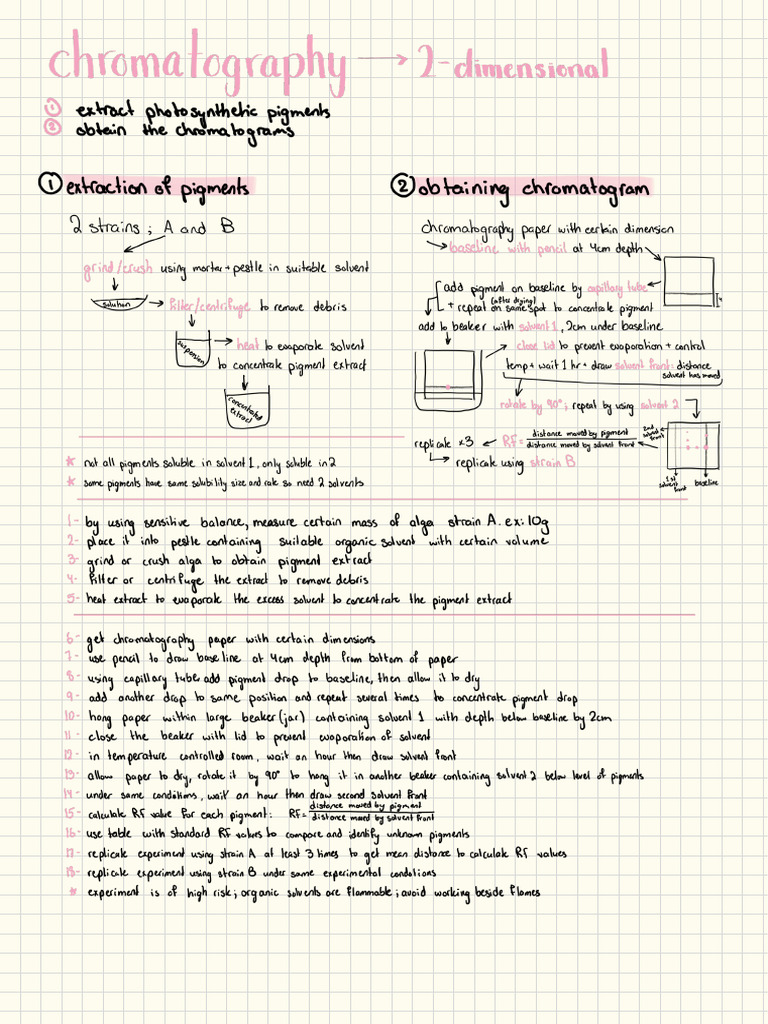 chromatography → 2-dimensional
① extract photosynthetic pigments
② obtain the chromatograms
① extraction of pigments
2 strains ; A and B
grind/crush using mortar + pestle in suitable solvent
solution
filter/centrifuge to remove debris
suspension
heat to evaporate solvent
to concentrate pigment extract
concentrated extract
② obtaining chromatogram
chromatography paper with certain dimension
baseline with pencil at 4cm depth
add pigment on baseline by capillary tube
(after drying)
+ repeat on same spot to concentrate pigment
4
add to beaker with solvent 1, 2cm under baseline
close lid to prevent evaporation + control
temp + wait 1 hr + draw solvent front: distance
solvent has moved
rotate by 90°; repeat by using solvent 2
replicate x3 ← RF = distance moved by pigment / distance moved by solvent front
replicate using strain B
2nd solvent front
1st solvent front
baseline
* not all pigments soluble in solvent 1, only soluble in 2
* some pigments have same solubility size and rate so need 2 solvents
1- by using sensitive balance, measure certain mass of alga strain A. ex: 10g
2- place it into pestle containing suitable organic solvent with certain volume
3- grind or crush alga to obtain pigment extract
4- filter or centrifuge the extract to remove debris
5- heat extract to evaporate the excess solvent to concentrate the pigment extract
6- get chromatography paper with certain dimensions
7- use pencil to draw base line at 4cm depth from bottom of paper
8- using capillary tube, add pigment drop to baseline, then allow it to dry
9- add another drop to same position and repeat several times to concentrate pigment drop
10- hang paper within large beaker (jar) containing solvent 1 with depth below baseline by 2cm
11- close the beaker with lid to prevent evaporation of solvent
12- in temperature controlled room, wait an hour then draw solvent front
13- allow paper to dry, rotate it by 90° to hang it in another beaker containing solvent 2 below level of pigments
14- under same conditions, wait an hour then draw second solvent front
15- calculate RF value for each pigment: RF = distance moved by pigment / distance moved by solvent front
16- use table with standard RF values to compare and identify unknown pigments
17- replicate experiment using strain A at least 3 times to get mean distance to calculate RF values
18- replicate experiment using strain B under same experimental conditions
* experiment is of high risk; organic solvents are flammable; avoid working beside flames